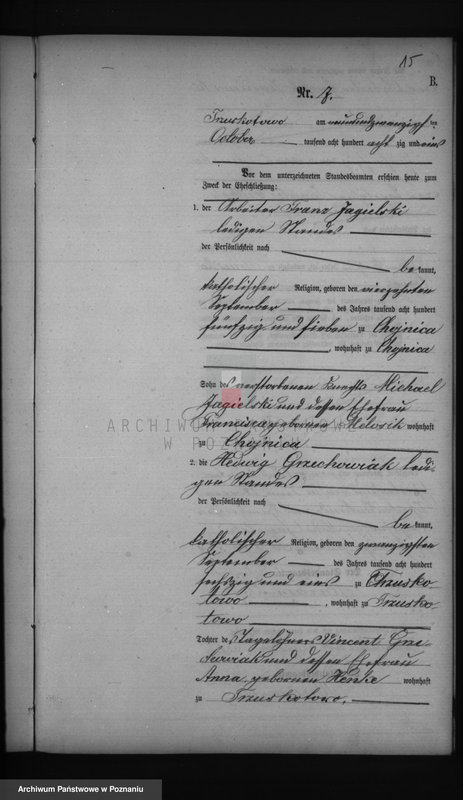 15
B.
Nr. 7.
Truskotowo am neunundzwanzigsten
October tausend acht hundert acht zig und eins
Vor dem unterzeichneten Standesbeamten erschien heute zum
Zweck der Eheschließung:
1. der Arbeiter Franz Jagielski
ledigen Standes
der Persönlichkeit nach
be kannt,
katholischer Religion, geboren den vierzehnten
September des Jahres tausend acht hundert
fünfzig und sieben zu Chojnica
, wohnhaft zu Chojnica
Sohn des verstorbenen Michael
Jagielski und dessen Ehefrau
Francisca geborenen wohnhaft
zu Chojnica
ARCHIWUM PAŃSTWOWE
W POZNANIU
2. die Hedwig Grzechowiak ledi-
gen Standes
der Persönlichkeit nach
be kannt,
katholischer Religion, geboren den zwanzigsten
September des Jahres tausend acht hundert
sechszig und eins zu Truskotowo
towo , wohnhaft zu Trusko-
towo
Tochter des Tagelöhners Vincent Grze-
und dessen Ehefrau
Anna, geborenen Henke wohnhaft
zu Truskotowo.
Archiwum Państwowe w Poznaniu